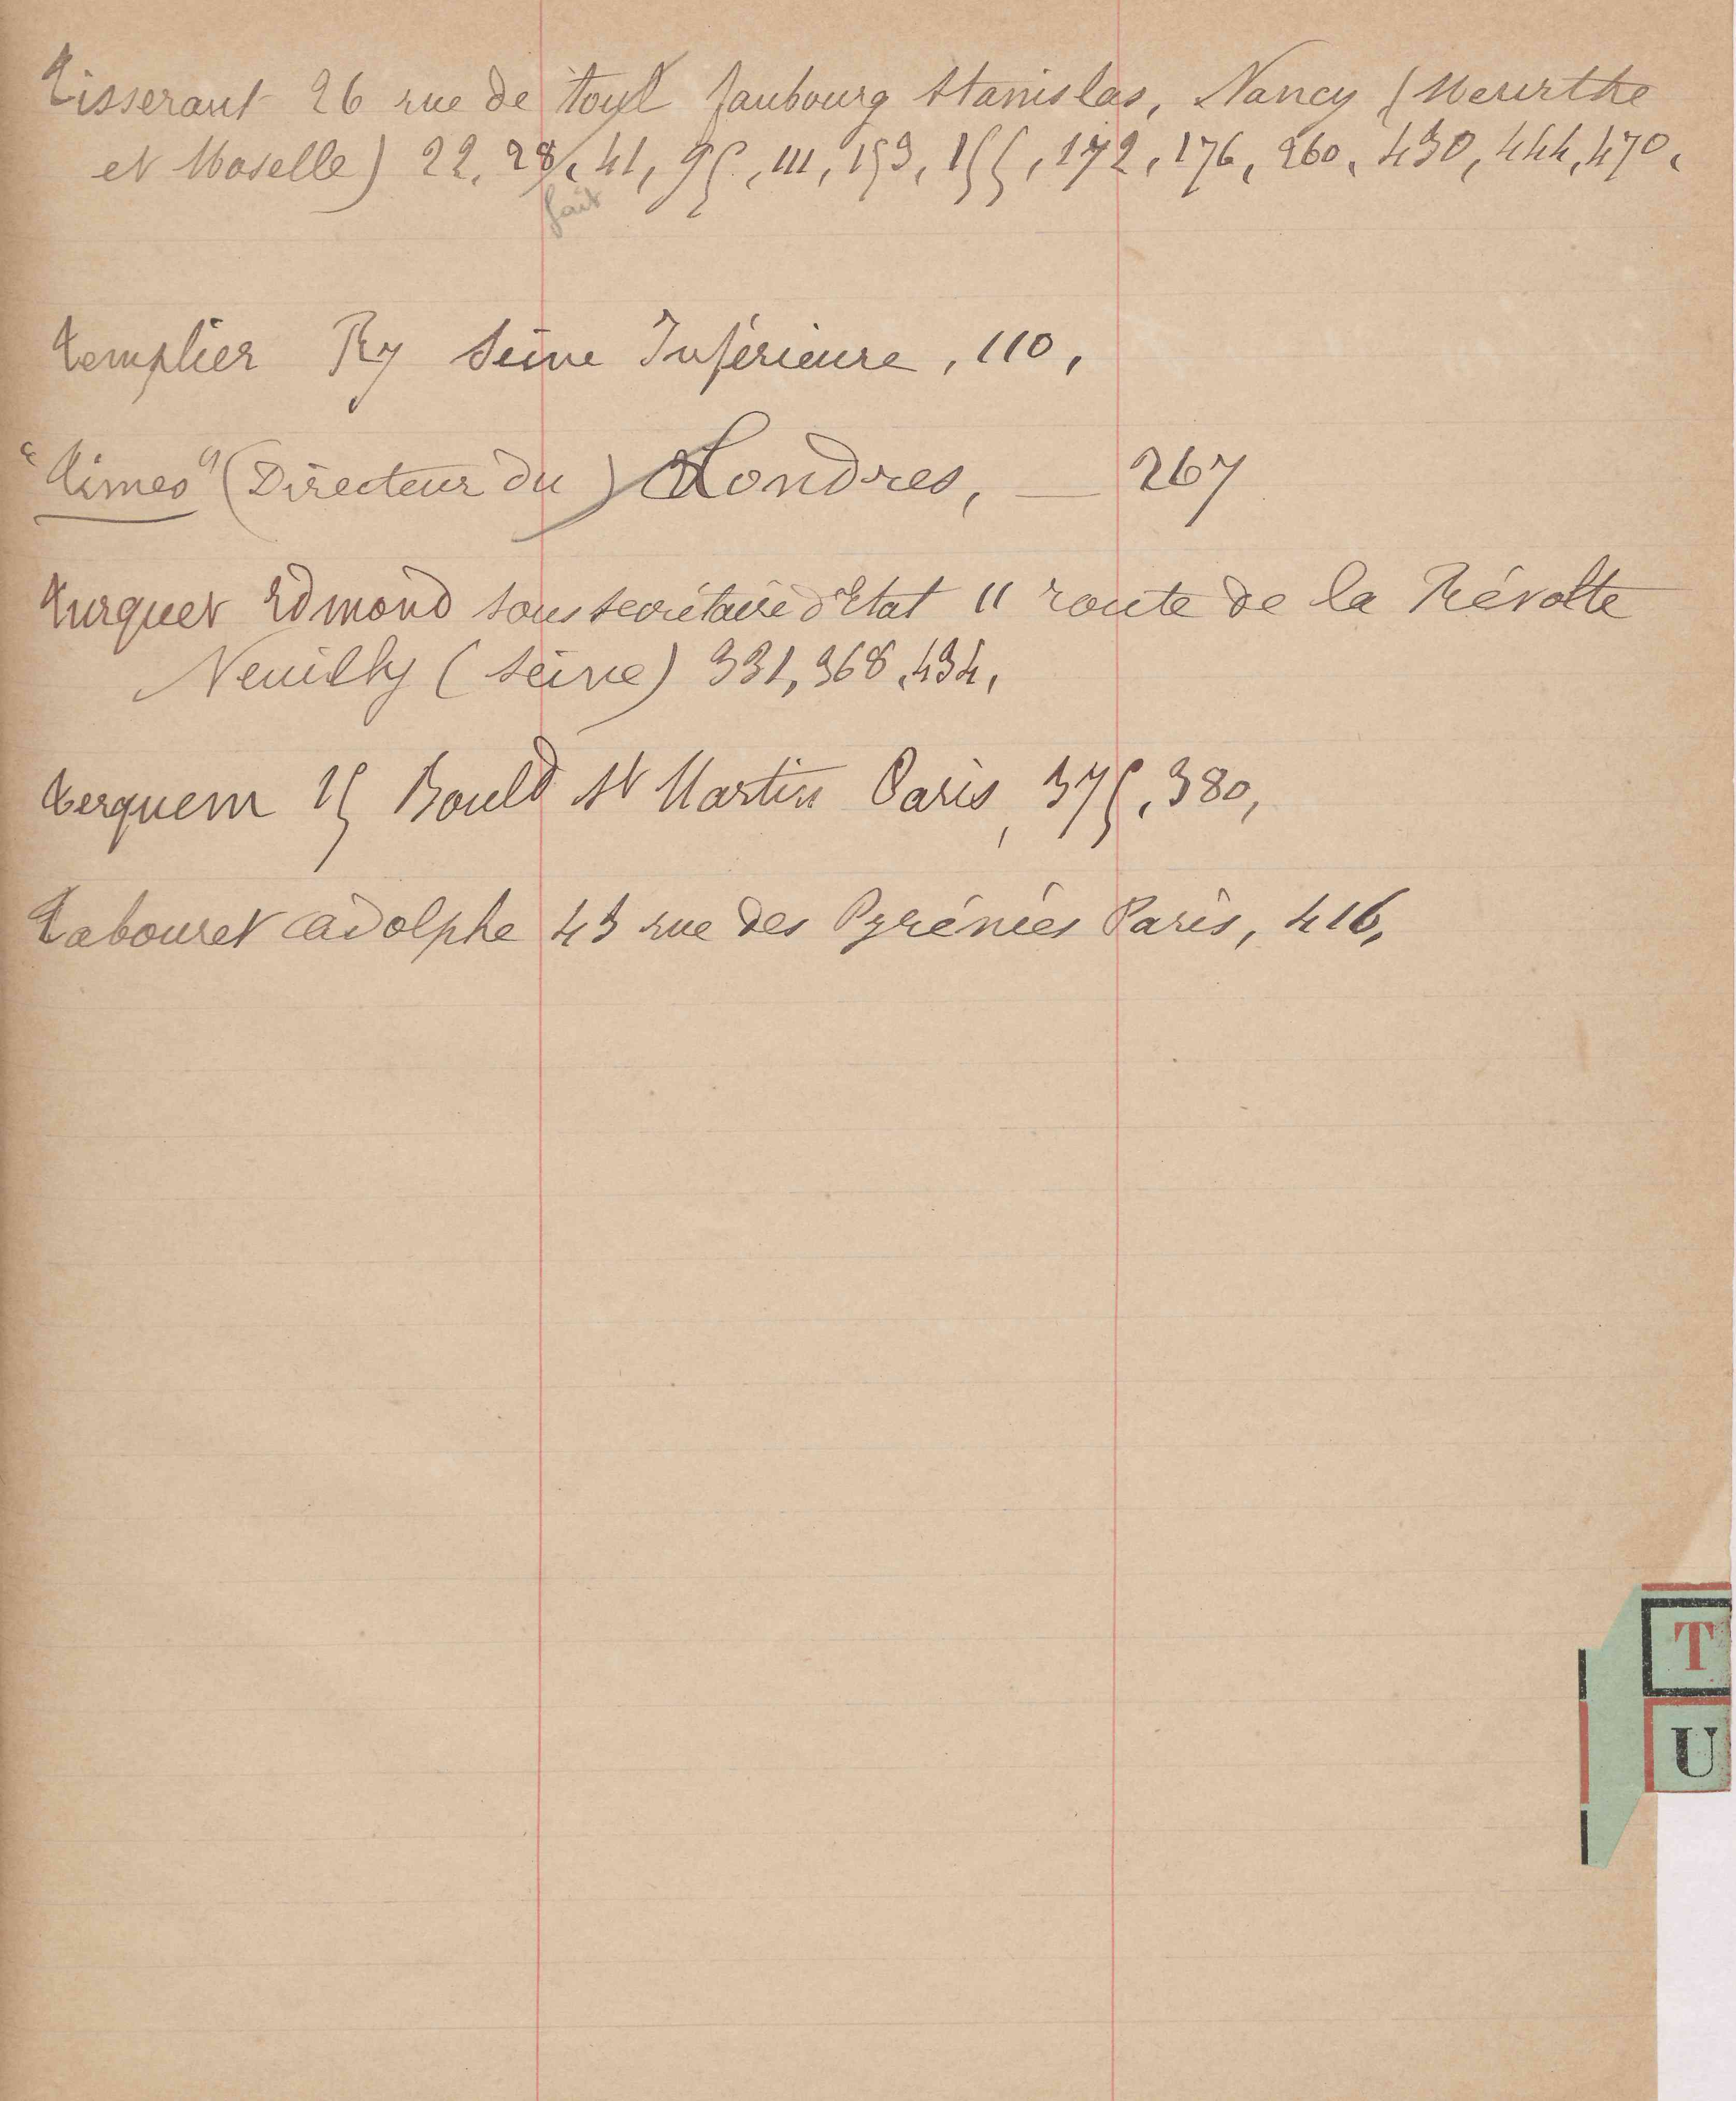 Tisserant 26 rue de Toul faubourg Stanislas, Nancy (Meurthe
et Moselle) 22, 28, 41, 95, 111, 153, 155, 172, 176, 260, 430, 444, 470,
fait
Templier Ry Seine Inférieure, 110,
"Times" (Directeur du) Londres, — 267
Turquet Edmond sous secrétaire d'Etat 11 route de la Révolte
Neuilly (Seine) 331, 368, 434,
Terquem 15 Bould St Martin Paris, 375, 380,
Tabouret Adolphe 43 rue des Pyrénées Paris, 416,
T
U